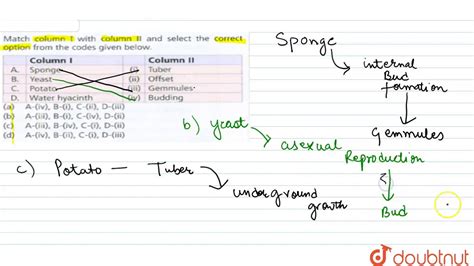 Match column I with column II and select the correct
option from the codes given below.
Column I Column II
A. Sponge (i) Tuber
B. Yeast (ii) Offset
C. Potato (iii) Gemmules
D. Water hyacinth (iv) Budding
(a) A-(iv), B-(i), C-(ii), D-(iii)
(b) A-(iii), B-(i), C-(iv), D-(ii)
(c) A-(iii), B-(iv), C-(i), D-(ii)
(d) A-(iv), B-(iii), C-(ii), D-(i)
Sponge
internal
Bud
formation
Gemmules
b) yeast
asexual
Reproduction
Bud
c) Potato — Tuber
underground
growth
doubtnut